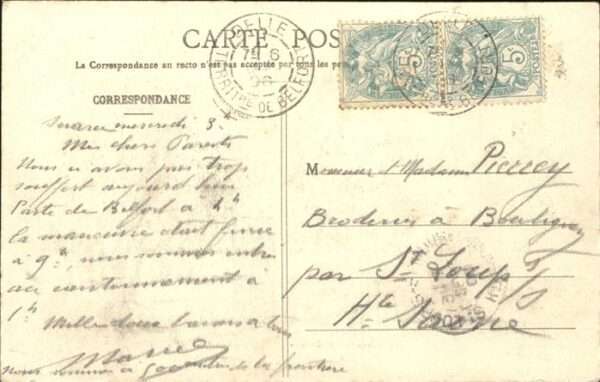 CARTE POS
La Correspondance au recto n'est pas acceptée par tous les pa
CORRESPONDANCE
DELLE
TERRITRE DE BELFORT
5c
POSTES
5c
POSTES
mercredi 3.
Mes chers Parents
Nous n'avons pas trop
souffert aujourd'hui
Parti de Belfort à 4h
la manœuvre était finie
à 9h, nous sommes
au cantonnement à
1h
Mille doux baisers à tous
Marcel
Nous sommes à de la frontière
Monsieur & Madame Pierrey
Broderies à
par St Loup s/S
Hte Saône